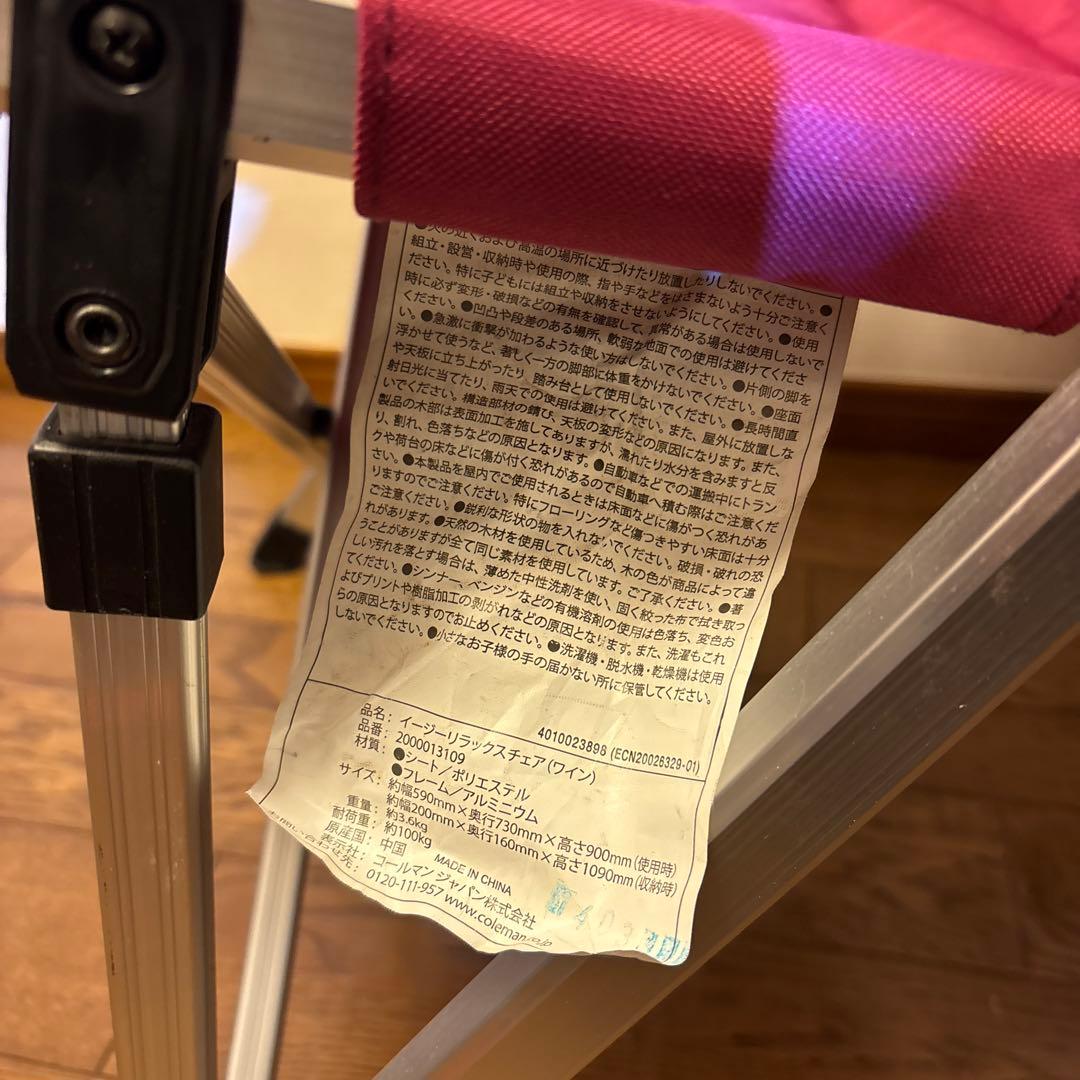 ●火の近くおよび高温の場所に近づけたり放置したりしないでください。●
組立・設営・収納時や使用の際、指や手などをはさまないよう十分ご注意く
ださい。特に子どもには組立や収納をさせないようにしてください。●使用
時に必ず変形・破損などの有無を確認して、異常がある場合は使用しないで
ください。●凹凸や段差のある場所、軟弱な地面での使用は避けてくださ
い。●急激に衝撃が加わるような使い方はしないでください。●片側の脚を
浮かせて使うなど、著しく一方の脚部に体重をかけないでください。●座面
や天板に立ち上がったり、踏み台として使用しないでください。●長時間直
射日光に当てたり、雨天での使用は避けてください。また、屋外に放置しな
いでください。構造部材の錆び、天板の変形などの原因になります。また、
製品の木部は表面加工を施してありますが、濡れたり水分を含みますと反
り、割れ、色落ちなどの原因となります。●自動車などでの運搬中にトラン
クや荷台の床などに傷が付く恐れがあるので自動車へ積む際はご注意くだ
さい。●本製品を屋内でご使用されるときは床面などに傷がつく恐れがあ
りますのでご注意ください。特にフローリングなど傷つきやすい床面は十分
ご注意ください。●鋭利な形状の物を入れないでください。破損・破れの恐
れがあります。●天然の木材を使用しているため、木の色が商品によって違
うことがありますが全て同じ素材を使用しています。ご了承ください。●著
しい汚れを落とす場合は、薄めた中性洗剤を使い、固く絞った布で拭き取っ
てください。●シンナー、ベンジンなどの有機溶剤の使用は色落ち、変色お
よびプリントや樹脂加工の剥がれなどの原因となります。また、洗濯もこれ
らの原因となりますのでお止めください。●洗濯機・脱水機・乾燥機は使用
しないでください。●小さなお子様の手の届かない所に保管してください。
4010023898 (ECN20026329-01)
品名：イージーリラックスチェア（ワイン）
品番：2000013109
材質：●シート／ポリエステル
●フレーム／アルミニウム
サイズ：約幅590mm×奥行730mm×高さ900mm（使用時）
約幅200mm×奥行160mm×高さ1090mm（収納時）
重量：約3.6kg
耐荷重：約100kg
原産国：中国 MADE IN CHINA
表示社：コールマン ジャパン株式会社
お問い合わせ先：0120-111-957 www.coleman.co.jp